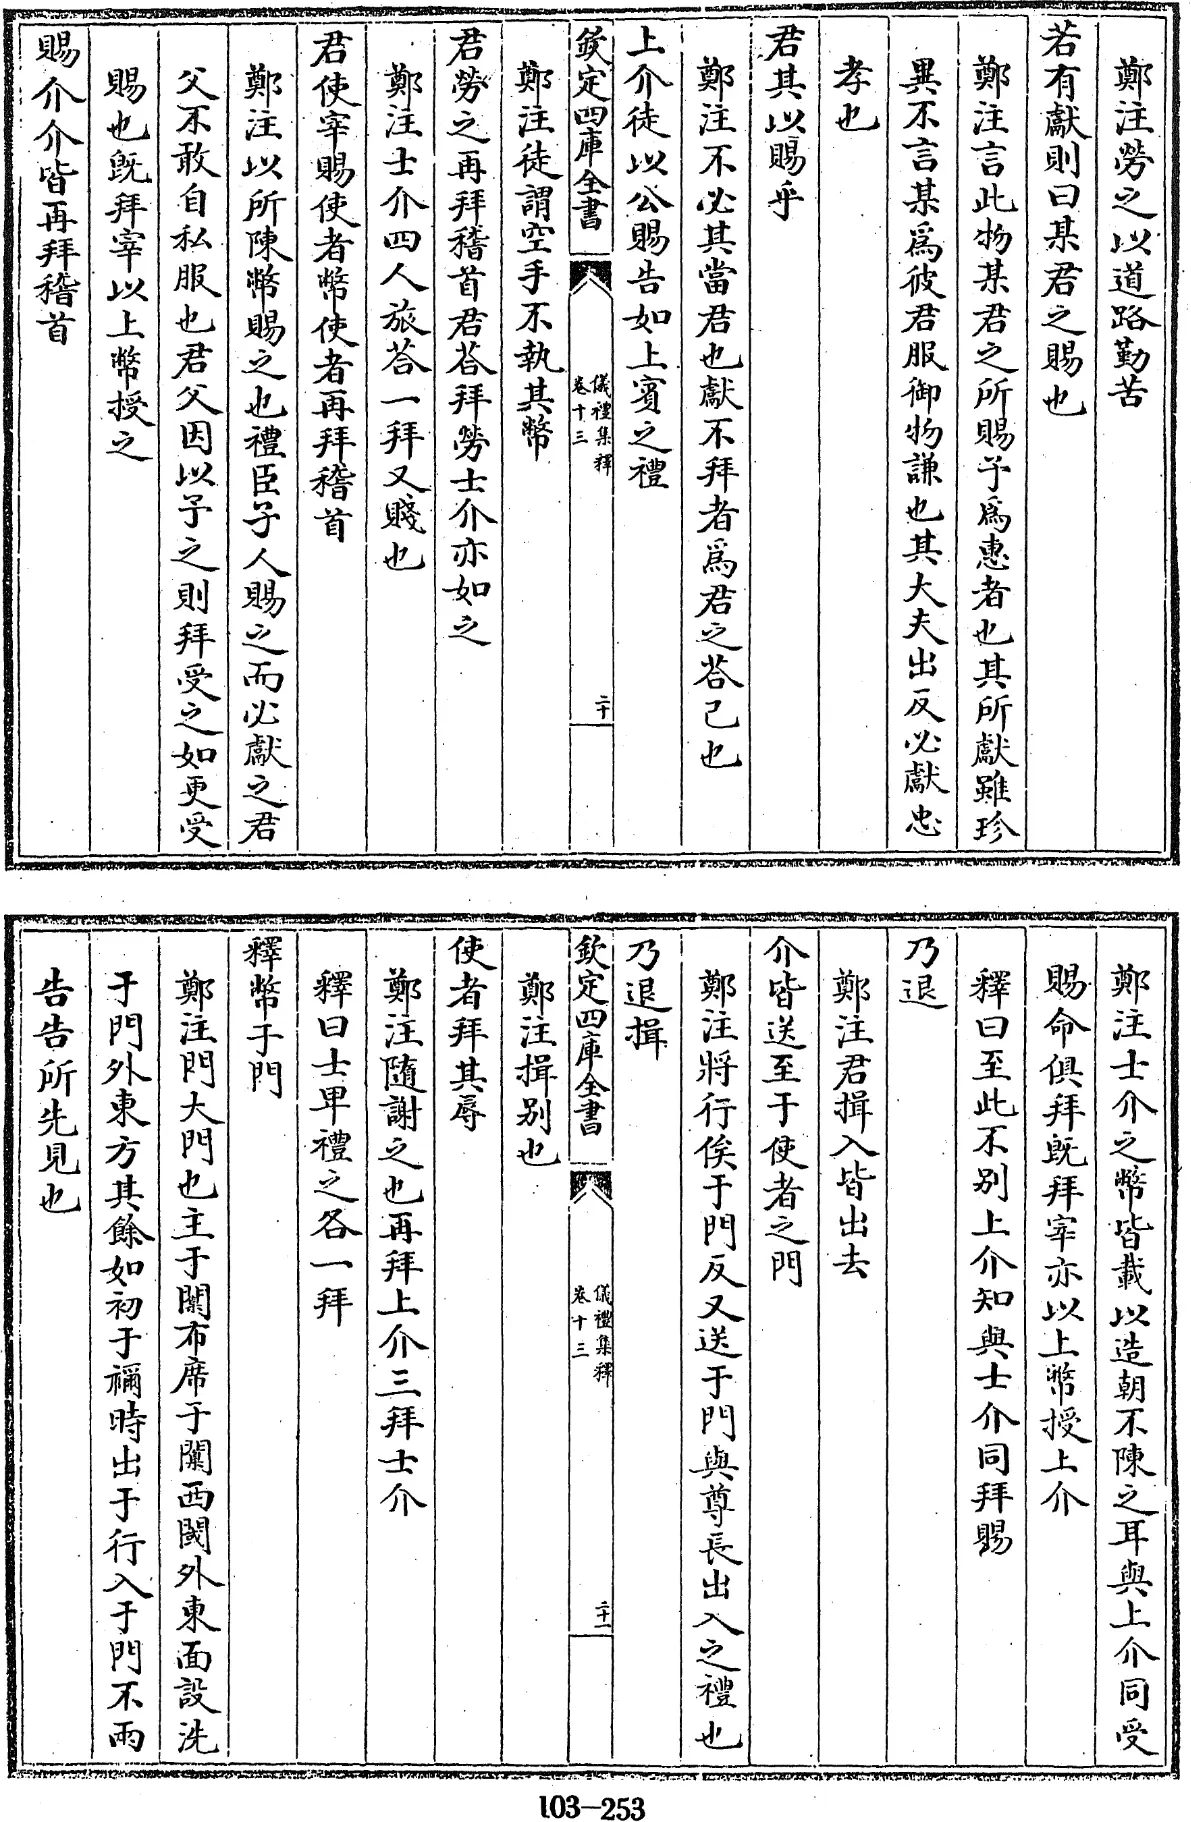 鄭注勞之以道路勤苦
若有獻則曰某君之賜也
鄭注言此物某君之所賜予爲惠者也其所獻雖珍
異不言某爲彼君服御物謙也其大夫出反必獻忠
孝也
君其以賜乎
鄭注不必其當君也獻不拜者爲君之荅己也
上介徒以公賜告如上賓之禮
欽定四庫全書
儀禮集釋
卷十三
二十
鄭注徒謂空手不執其幣
君勞之再拜稽首君荅拜勞士介亦如之
鄭注士介四人旅荅一拜又賤也
君使宰賜使者幣使者再拜稽首
鄭注以所陳幣賜之也禮臣子人賜之而必獻之君
父不敢自私服也君父因以予之則拜受之如更受
賜也既拜宰以上幣授之
賜介介皆再拜稽首
鄭注士介之幣皆載以造朝不陳之耳與上介同受
賜命俱拜既拜宰亦以上幣授上介
釋曰至此不別上介知與士介同拜賜
乃退
鄭注君揖入皆出去
介皆送至于使者之門
鄭注將行俟于門反又送于門與尊長出入之禮也
乃退揖
欽定四庫全書
儀禮集釋
卷十三
二十一
鄭注揖別也
使者拜其辱
鄭注隨謝之也再拜上介三拜士介
釋曰士卑禮之各一拜
釋幣于門
鄭注門大門也主于闑布席于闑西閾外東面設洗
于門外東方其餘如初于禰時出于行入于門不兩
告告所先見也
103-253